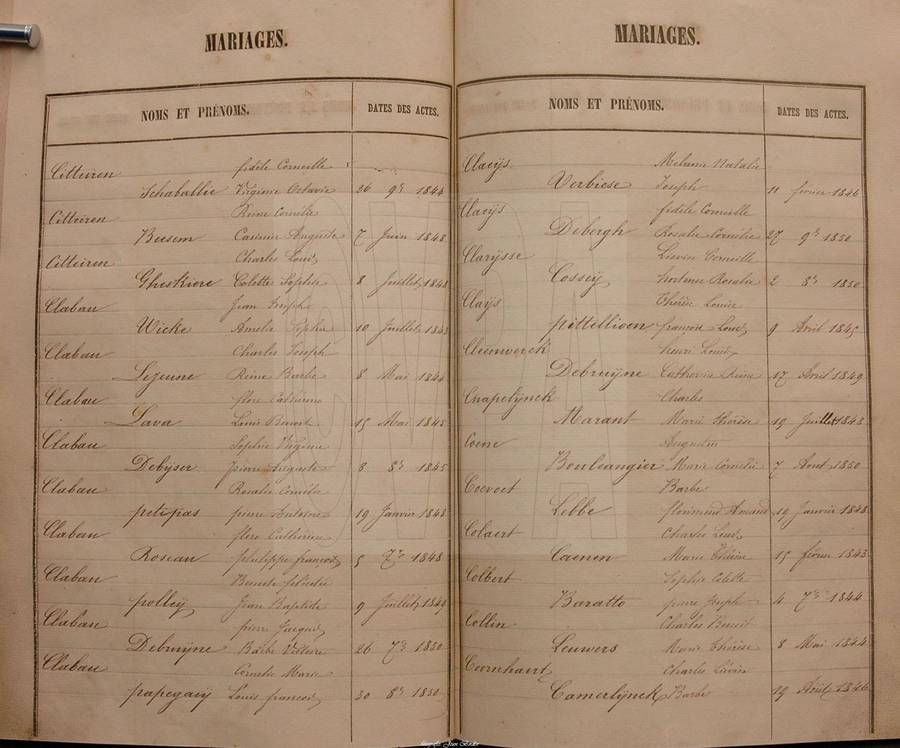 MARIAGES.
NOMS ET PRÉNOMS. DATES DES ACTES.
Citteiren fidèle Corneille
Schaballie Virginie Octavie 26 9e 1844
Citteiren Reine Cornélie
Beesem Casimir Auguste 7 Juin 1848
Citteiren Charles Louis
Ghestiere Colette Sophie 8 Juillet 1848
Clabau Jean Joseph
Wicke Amelie Sophie 10 Juillet 1843
Clabau Charles Joseph
Lejeune Reine Barbe 8 Mai 1844
Clabau flore Catherine
Lava Louis Benoit 15 Mai 1845
Clabau Sophie Virginie
Debyser pierre Auguste 8 8e 1845
Clabau Rosalie Cornélie
petitpas pierre Antoine 19 Janvier 1848
Clabau flore Catherine
Roseau philippe francois 5 7e 1848
Clabau
polley Jean Baptiste 9 Juillet
Clabau pierre Jacques
Debruyne Barbe Victoire 26 7e 1850
Clabau Cornelie Marie
papegaey Louis francois 30 8e 1850
MARIAGES.
NOMS ET PRÉNOMS. DATES DES ACTES.
Claeÿs Melanie Natalie
Verbiese Joseph 11 février 1846
Claeÿs fidèle Corneille
Debergh Rosalie Cornélie 27 9e 1850
Clarÿsse Lievin Corneille
Cossey Rosalie 2 8e 1850
Claÿs Thérèse Louise
pittellioen françois Louis 9 Avril 1845
Cleenwerck henri Louis
Debruÿne Catherine Reine 17 Avril 1849
Cnapelÿnck Charles
Marant Marie thérèse 19 Juillet 1843
Coene Augustin
Bouleangier Marie Cornélie 7 Aout 1850
Coevoet Barbe
Lebbe florimond Amand 19 Janvier 1848
Colaert Charles Louis
Caenen Marie Thérèse 15 février 1843
Colbert Sophie Colette
Baratto pierre Joseph 4 7e 1844
Collin Charles Benoit
Leuwers Marie Thérèse 8 Mai 1844
Cornhaert Charles Liévin
Camerlÿnck Barbe 19 Août 1846